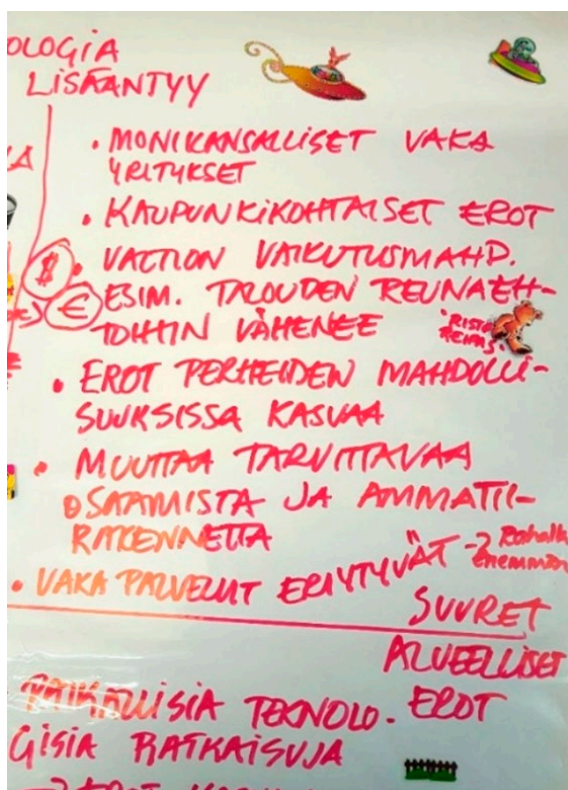 OLOGIA
LISÄÄNTYY
A
• MONIKANSALLISET VAKA
YRITYKSET
• KAUPUNKIKOHTAISET EROT
$
• VALTION VAIKUTUSMAHD.
→ € ESIM. TALOUDEN REUNAEH-
TOIHIN VÄHENEE
"RISTO
REIPAS"
• EROT PERHEIDEN MAHDOLLI-
SUUKSISSA KASVAA
• MUUTTAA TARVITTAVAA
OSAAMISTA JA AMMATTI-
RAKENNETTA
• VAKA PALVELUT ERIYTYVÄT → Rahalla
enemmän
SUURET
ALUEELLISET
EROT
PAIKALLISIA TEKNOLO-
GISIA RATKAISUJA
→ EROT